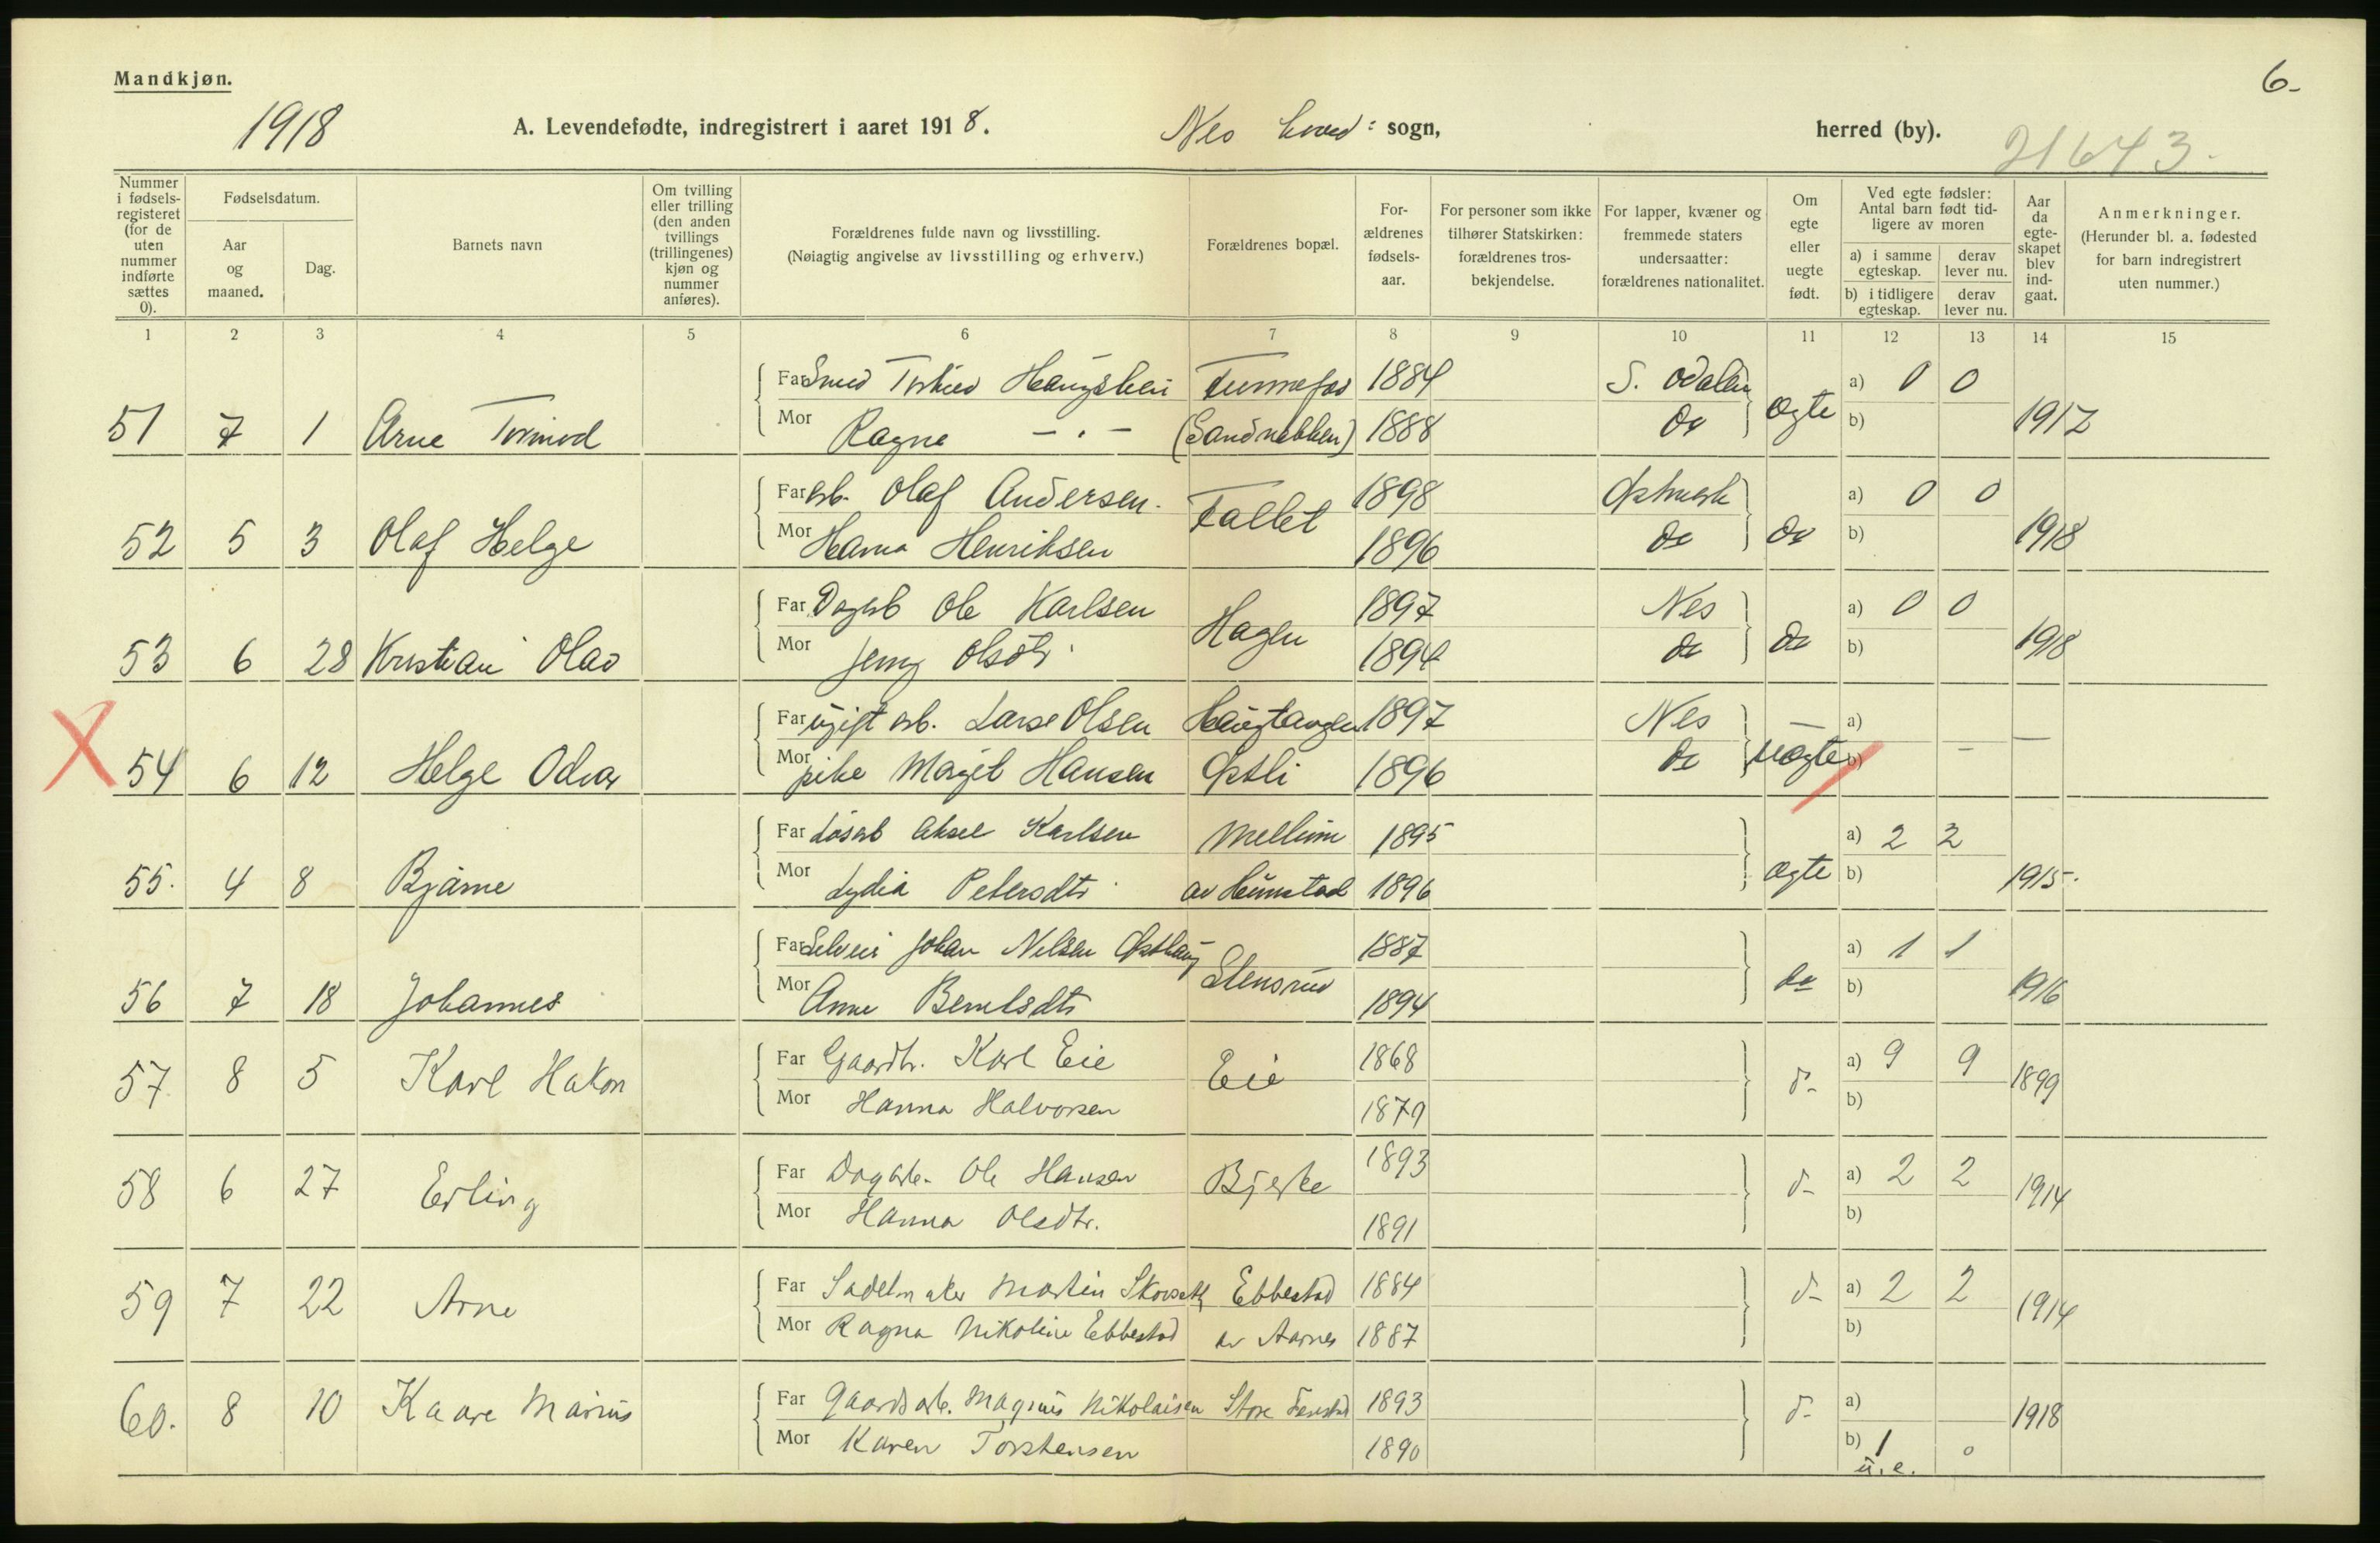 Mandkjøn.
6-
1918 A. Levendefødte, indregistrert i aaret 1918. Nes hoved: sogn, herred (by). 21643.
Nummer i fødsels-registeret (for de uten nummer indførte sættes 0).
Fødselsdatum.
Aar og maaned.
Dag.
Barnets navn
Om tvilling eller trilling (den anden tvillings (trillingenes) kjøn og nummer anføres).
Forældrenes fulde navn og livsstilling.
(Nøiagtig angivelse av livsstilling og erhverv.)
Forældrenes bopæl.
For-ældrenes fødsels-aar.
For personer som ikke tilhører Statskirken: forældrenes tros-bekjendelse.
For lapper, kvæner og fremmede staters undersaatter: forældrenes nationalitet.
Om egte eller uegte født.
Ved egte fødsler: Antal barn født tid-ligere av moren
a) i samme egteskap.
derav lever nu.
b) i tidligere egteskap.
derav lever nu.
Aar da egte-skapet blev ind-gaat.
Anmerkninger.
(Herunder bl. a. fødested for barn indregistrert uten nummer.)
1 2 3 4 5 6 7 8 9 10 11 12 13 14 15
Far Smed 1884 S. Odalen a) 0 0
51 7 1 Arne Tormod Mor Ragna — . — (Sandnebben) 1888 do ægte b) 1917
Far arb. Olaf Andersen. Fallet 1898 a) 0 0
52 5 3 Olaf Helge Mor Hanna Henriksen 1896 do do b) 1918
Far Dagarb Ole Karlsen Hagen 1897 Nes a) 0 0
53 6 28 Kristian Olav Mor Jenny Olsdtr 1894 do do b) 1918
Far ugift arb. Lars Olsen 1897 Nes — a) —
X 54 6 12 Helge Odvar Mor pike Margit Hansen Østli 1896 do uægte b) —
Far Løsarb Aksel Karlsen Mellum 1895 a) 2 2
55. 4 8 Bjarne Mor Lydia Petersdtr av Henstad 1896 ægte b) 1915.
Far Selveier Johan Nilsen Østhaug Stensrud 1887 a) 1 1
56 7 18 Johannes Mor Anne Berntsdtr 1894 do b) 1916
Far Gaardbr. Karl Eie Eie 1868 a) 9 9
57 8 5 Karl Hakon Mor Hanna Halvorsen 1879 d- b) 1899
Far Dagarb. Ole Hansen Bjerke 1893 a) 2 2
58 6 27 Erling Mor Hanna Olsdtr. 1891 d- b) 1914
Far Sadelmaker Martin Skovseth Ebbestad 1884 a) 2 2
59 7 22 Arne Mor Ragna Nikoline Ebbestad av Aarnes 1887 d- b) 1914
Far Gaardsarb. Magnus Nikolaisen Store 1893 a)
60. 8 10 Kaare Marius Mor Karen Torstensen 1890 d- b) 1 0 1918
u. e.